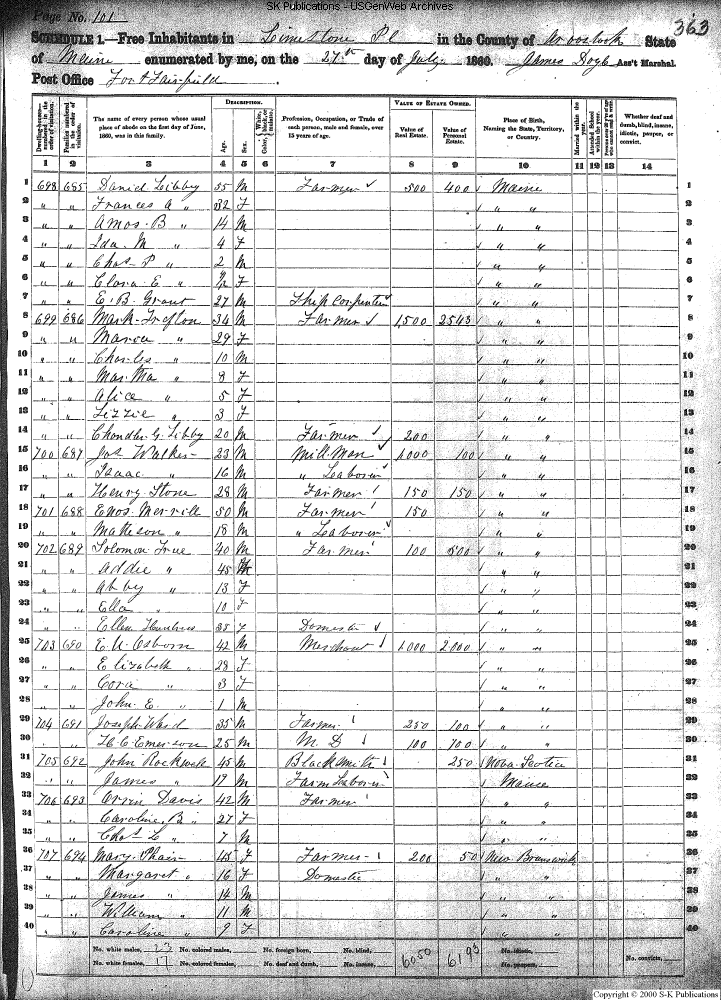 SK Publications - USGenWeb Archives
Page No. 101
363
SCHEDULE 1.—Free Inhabitants in Limestone Pl in the County of Aroostook State
of Maine enumerated by me, on the 27th day of July 1860. James Doyle Ass't Marshal.
Post Office Fort Fairfield
Dwelling-houses—numbered in the order of visitation. Families numbered in the order of visitation. The name of every person whose usual place of abode on the first day of June, 1860, was in this family. DESCRIPTION. Age. Sex. Color, White, black, or mulatto. Profession, Occupation, or Trade of each person, male and female, over 15 years of age. VALUE OF ESTATE OWNED. Value of Real Estate. Value of Personal Estate. Place of Birth, Naming the State, Territory, or Country. Married within the year. Attended School within the year. Whether deaf and dumb, blind, insane, idiotic, pauper, or convict.
1 2 3 4 5 6 7 8 9 10 11 12 13 14
1 698 685 Daniel Libby 35 M Farmer 500 400 Maine 1
2 " " Frances A " 32 F " " 2
3 " " Amos B " 14 M " " 3
4 " " Ida M " 4 F " " 4
5 " " Chas P " 2 M " " 5
6 " " Clora E " F " " 6
7 " " E. B. Grant 27 M Ship Carpenter " " 7
8 699 686 Mark Trefton 34 M Farmer 1,500 2543 " " 8
9 " " " 29 F " " 9
10 " " Charles " 10 M " " 10
11 " " " 8 F " " 11
12 " " Alice " 5 F " " 12
13 " " Lizzie " 3 F " " 13
14 " " Chandler G. Libby 20 M Farmer 200 " " 14
15 700 687 Jos Walker 23 M Mill Man 1,000 100 " " 15
16 " " Isaac " 16 M " Laborer " " 16
17 " " Henry Stone 28 M Farmer 150 150 " " 17
18 701 688 Enos Merrill 50 M Farmer 150 " " 18
19 " " Matheson " 18 M " Laborer " " 19
20 702 689 Solomon True 40 M Farmer 100 500 " " 20
21 " " Addie " 45 " " 21
22 " " Abby " 13 F " " 22
23 " " Ella " 10 F " " 23
24 " " Ellen 35 F Domestic " " 24
25 703 690 E. U. Osborn 42 M Merchant 1,000 2,000 " " 25
26 " " Elizabeth " 28 F " " 26
27 " " Cora " 3 F " " 27
28 " " John E. " 1 M " " 28
29 704 691 Joseph Ward 35 M Farmer 250 100 " " 29
30 " " H C Emerson 25 M M. D 100 100 " " 30
31 705 692 John Rockwell 45 M Blacksmith 250 Nova Scotia 31
32 " " James " M Farm Laborer Maine 32
33 706 693 Orrin Davis 42 M Farmer " " 33
34 " " Caroline B " 27 F " " 34
35 " " Chas L " 7 M " " 35
36 707 694 Mary Phair 45 F Farmer 200 50 New Brunswick 36
37 " " Margaret " 16 F Domestic " " 37
38 " " James " 14 M " " 38
39 " " William " 11 M " " 39
40 " " Caroline " 9 F " " 40
No. white males, 23 No. colored males, No. foreign born, No. blind, 6050 6193 No. idiotic,
No. white females, 17 No. colored females, No. deaf and dumb, No. insane, No. paupers, No. convicts,
Copyright © 2000 S-K Publications